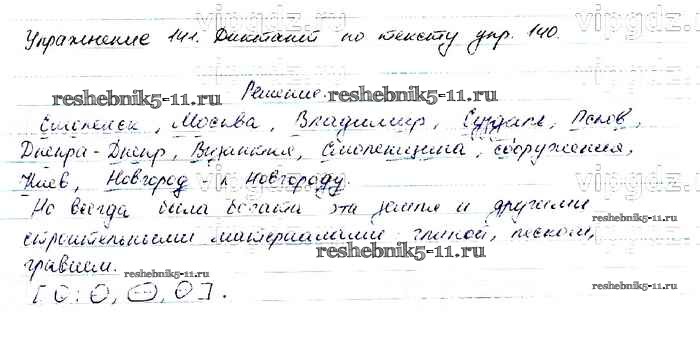 vipgdz.ru vipgdz.ru
Упражнение 141. Диктант по тексту упр. 140.
vipgdz.ru
Решение.
reshebnik5-11.ru reshebnik5-11.ru
Смоленск, Москва, Владимир, Суздаль, Псков,
Днепра-Днепр, Византия, Смоленщина, сооружения,
Киев, Новгород к Новгороду.
vipgdz.ru vipgdz.ru
Но всегда была богата эта земля и другими
reshebnik5-11.ru
строительными материалами: глиной, песком,
reshebnik5-11.ru
гравием.
reshebnik5-11.ru
[О: О, О, О].
reshebnik5-11.ru
vipgdz.ru